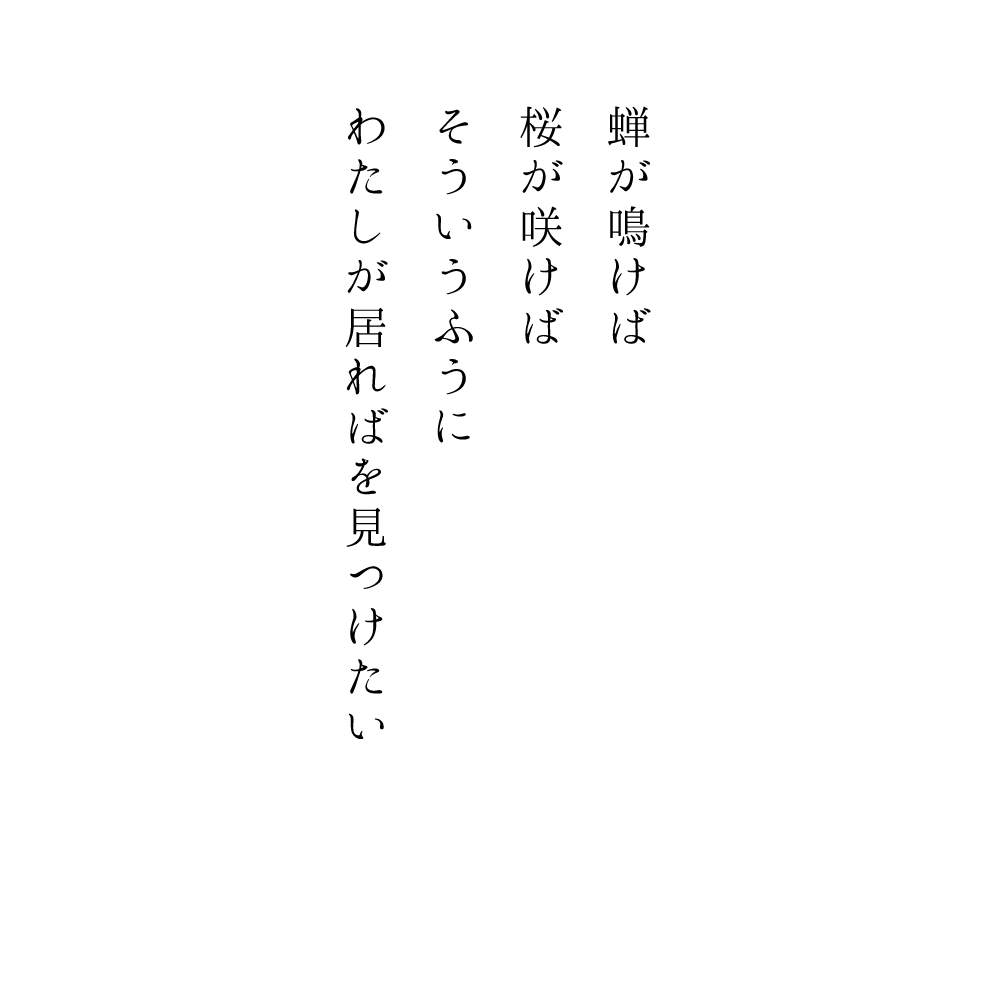 蝉が鳴けば
桜が咲けば
そういうふうに
わたしが居ればを見つけたい